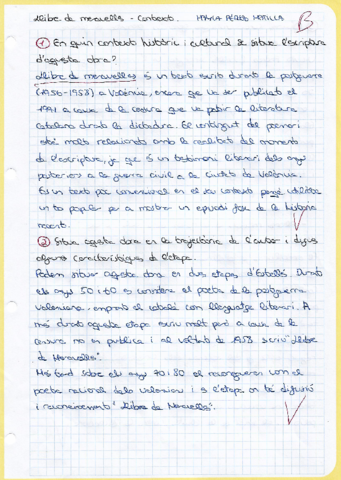 Llibre de meravelles - Context. MARIA PÉREZ MORILLA
B
1 En quin context històric i cultural se situa l'escriptura
d'aquesta obra?
Llibre de meravelles és un text escrit durant la postguerra
(1956-1958) a València, encara que va ser publicat el
1971 a causa de la censura que va patir la literatura
catalana durant la dictadura. El contingut del poemari
està molt relacionat amb la realitat del moment
de l'escriptura, ja que és un testimoni literari dels anys
posteriors a la guerra civil a la ciutat de València.
És un text poc convencional en el seu context perquè utilitza
un to popular per a mostrar un episodi fosc de la història
recent.
2 Situa aquesta obra en la trajectòria de l'autor i digues
algunes característiques de l'etapa.
Podem situar aquesta obra en dues etapes d'Estellés. Durant
els anys 50 i 60 es considera el poeta de la postguerra
valenciana, emprant el català com llenguatge literari. A
més durant aquesta etapa escriu molt però a causa de la
censura no en publica i al voltant de 1958 escriu "Llibre
de Meravelles".
Més tard sobre els anys 70 i 80 el reconegueren com el
poeta nacional dels valencians i és l'etapa on té difusió
i reconeixement "Llibre de Meravelles".